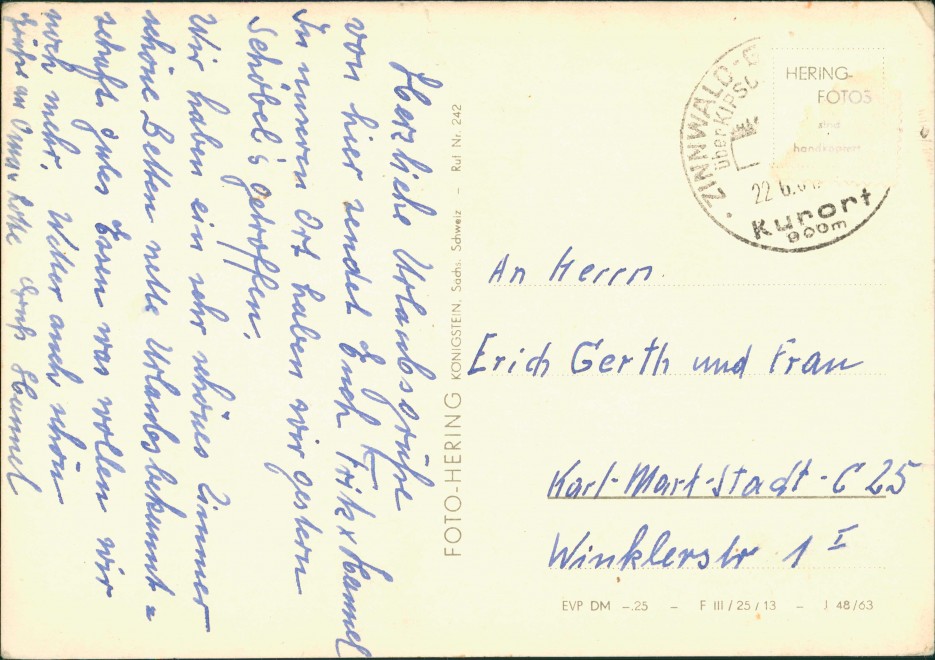 Herzliche Urlaubsgrüße
von hier sendet Euch Fritz & Hannel
In unseren Ort haben wir gestern
Schöbel's getroffen.
Wir haben ein sehr schönes Zimmer
schöne Betten nette Urlaubsbekannt=
schaft gutes Essen was wollen wir
noch mehr. Wetter auch schön
Grüße an Oma Gruß Hannel
FOTO-HERING KÖNIGSTEIN, Sächs. Schweiz – Ruf Nr. 242
ZINNWALD-G
über KIPSD
22.6.6
Kurort
900m
HERING-
FOTOS
sind
handkopiert
An Herrn
Erich Gerth und Frau
Karl-Marx-Stadt-C 25
Winklerstr 1 I
EVP DM –.25 – F III/25/13 – J 48/63